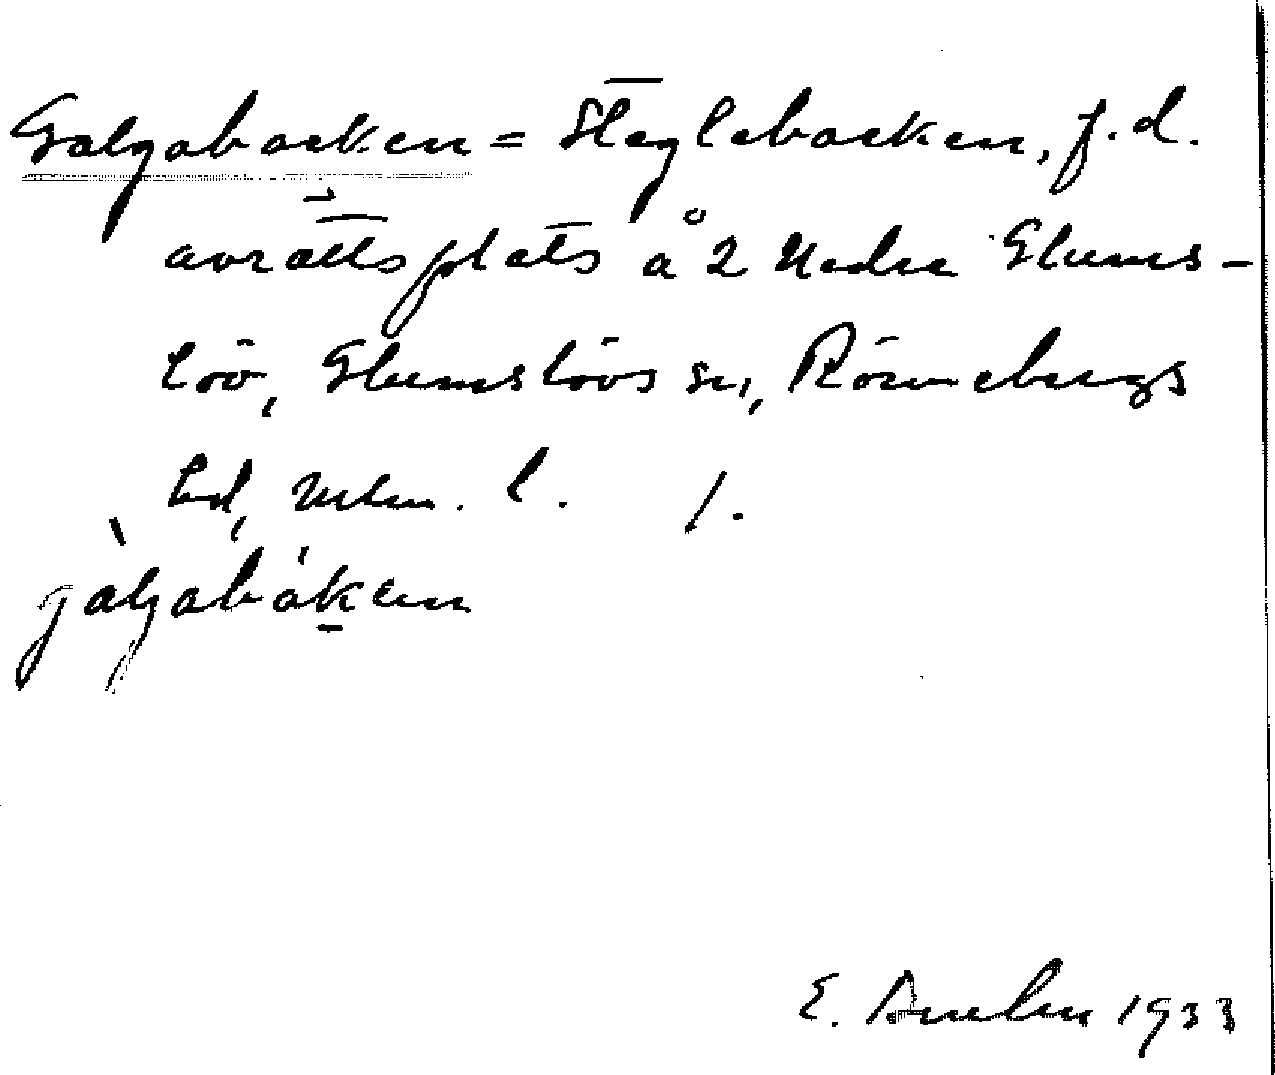 Galgabacken = Steglebacken, f.d.
avrättsplats å 2 Nedre Glums-
löv, Glumslövs sn, Rönnebergs
hd, Mlm. l. /.
gàlgabákɛn
E. 1933